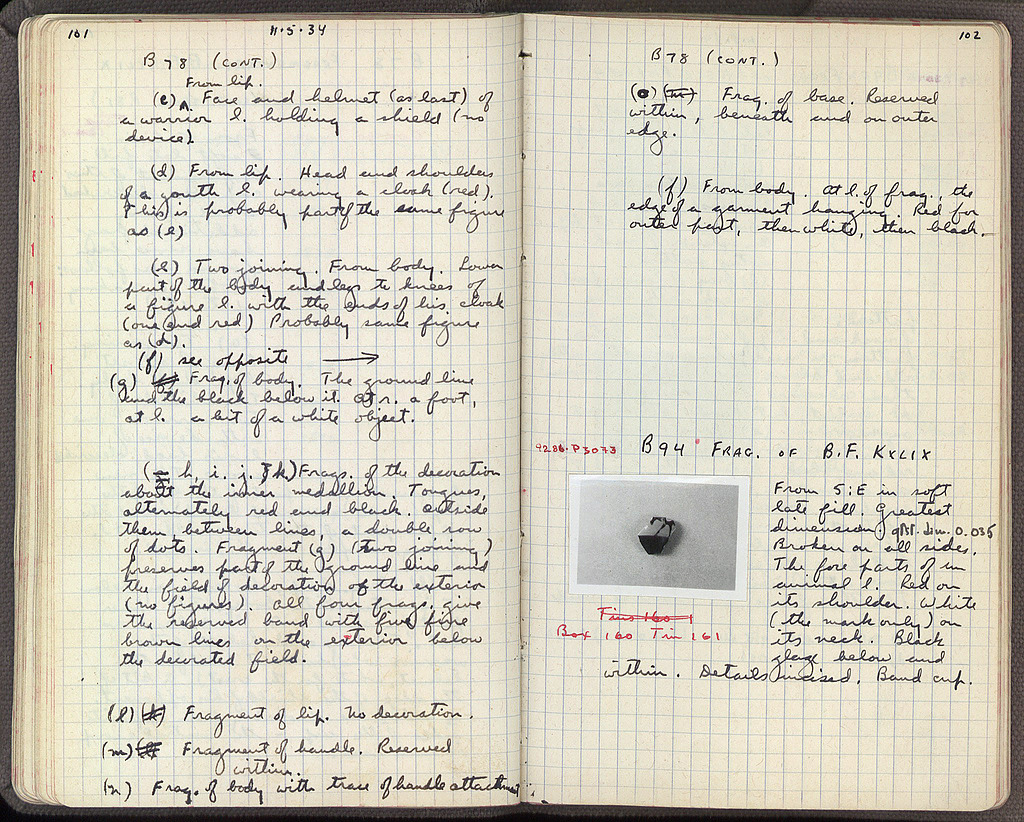 101
11·5·34
B78 (CONT.)
From lip.
(c) Face and helmet (as last) of
a warrior l. holding a shield (no
device).
(d) From lip. Head and shoulders
of a youth l. wearing a cloak (red).
This is probably part of the same figure
as (e)
(e) Two joining. From body. Lower
part of the body and legs to knees of
a figure l. with the ends of his cloak
(one end red) Probably same figure
as (d).
(f) see opposite
(g) Frag. of body. The ground line
and the black below it. At r. a foot,
at l. a bit of a white object.
(h, i, j, k) Frags. of the decoration
about the inner medallion. Tongues,
alternately red and black. Outside
them between lines, a double row
of dots. Fragment (g) (two joining)
preserves part of the ground line and
the field of decoration of the exterior
(no figures). All four frags. give
the reserved band with five fine
brown lines on the exterior below
the decorated field.
(l) Fragment of lip. No decoration.
(m) Fragment of handle. Reserved
within.
(n) Frag. of body with trace of handle attachment
102
B78 (CONT.)
(o) (m) Frag. of base. Reserved
within, beneath and on outer
edge.
(f) From body. At l. of frag., the
edge of a garment hanging. Red for
outer part, then white, then black.
9286·P3073 B94 FRAG. OF B.F. KXLIX
From 5:E in soft
late fill. Greatest
dimension, gr. dim. 0.035
Broken on all sides.
The fore parts of an
animal l. Red on
its shoulder. White
(the mark only) on
its neck. Black
glaze below and
within. Details incised. Band cup.
Tins 160
Box 160 Tin 161